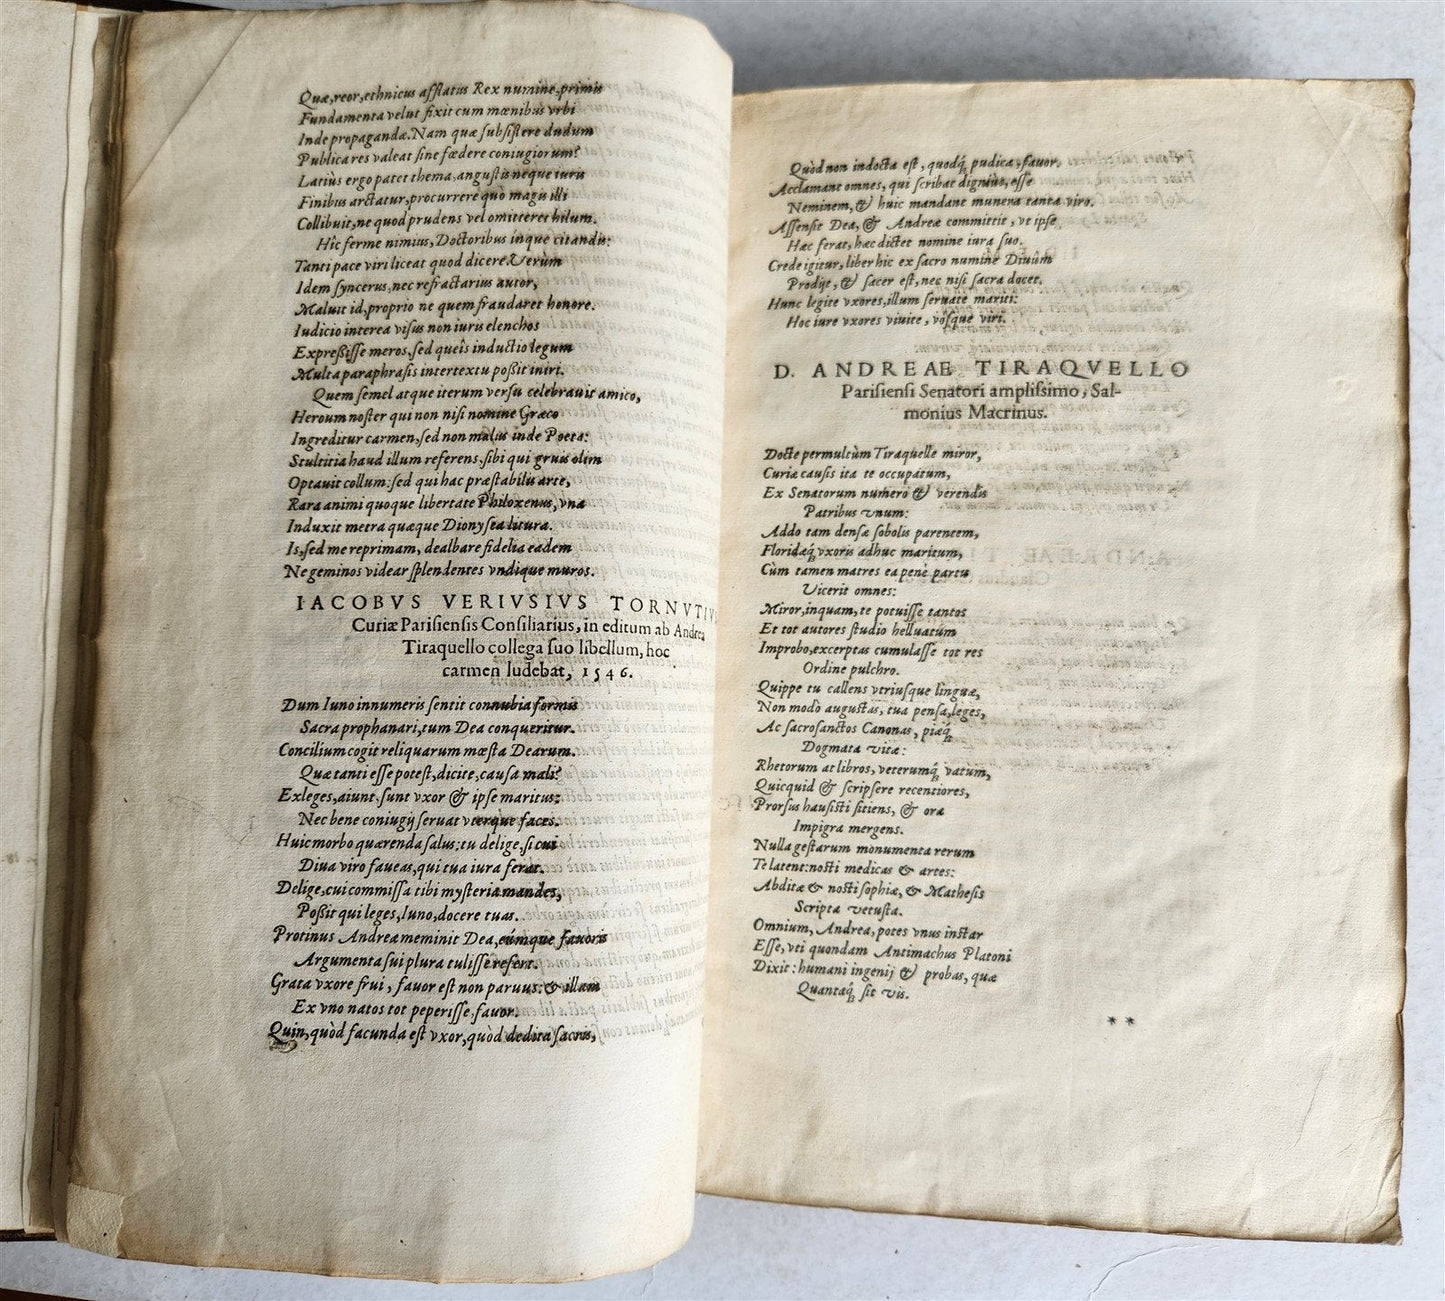 Quæ, reor, ethnicus afflatus Rex numine, primis
Fundamenta velut fixit cum mœnibus vrbi
Inde propagandæ. Nam quæ subsistere dudum
Publica res valeat sine fœdere coniugiorum?
Latiùs ergo patet thema, angustis neque iuris
Finibus arctatur, procurrere quò magis illi
Collibuit, ne quod prudens vel omitteret hilum.
Hîc ferme nimius, Doctoribus ínque citandis:
Tanti pace viri liceat quod dicere. Verùm
Idem syncerus, nec refractarius autor,
Maluit id, proprio ne quem fraudaret honore.
Iudicio interea visus non iuris elenchos
Expreßisse meros, sed queîs inductio legum
Multa paraphrasis intertextu poßit iniri.
Quem semel atque iterum versu celebrauit amico,
Heroum noster qui non nisi nomine Græco
Ingreditur carmen, sed non malus inde Poeta:
Stultitia haud illum referens, sibi qui gruis olim
Optauit collum: sed qui hac præstabilis arte,
Rara animi quoque libertate Philoxenus, vna
Induxit metra quæque Dionysea litura.
Is, sed me reprimam, dealbare fidelia eadem
Ne geminos videar splendentes vndique muros.
IACOBVS VERIVSIVS TORNVTIV
Curiæ Parisiensis Consiliarius, in editum ab Andrea
Tiraquello collega suo libellum, hoc
carmen ludebat, 1546.
Dum Iuno innumeris sentit connubia formis
Sacra prophanari, tum Dea conqueritur.
Concilium cogit reliquarum mœsta Dearum.
Quæ tanti esse potest, dicite, causa mali?
Exleges, aiunt, sunt vxor & ipse maritus:
Nec bene coniugij seruat vterque faces.
Huic morbo quærenda salus: tu delige, si cui
Diua viro faueas, qui tua iura ferat.
Delige, cui commissa tibi mysteria mandes,
Poßit qui leges, Iuno, docere tuas.
Protinus Andreæ meminit Dea, eúmque fauoris
Argumenta sui plura tulisse refert.
Grata vxore frui, fauor est non paruus: & illam
Ex vno natos tot peperisse, fauor.
Quin, quòd facunda est vxor, quòd dedita sacris,
Quòd non indocta est, quodq́; pudica, fauor.
Acclamant omnes, qui scribat dignius, esse
Neminem, & huic mandant munera tanta viro.
Assensit Dea, & Andreæ committit, vt ipse
Hæc ferat, hæc dictet nomine iura suo.
Crede igitur, liber hic ex sacro numine Diuûm
Prodijt, & sacer est, nec nisi sacra docet.
Hunc legite vxores, illum seruate mariti:
Hoc iure vxores viuite, vósque viri.
D. ANDREAE TIRAQVELLO
Parisiensi Senatori amplissimo, Sal-
monius Macrinus.
Docte permultùm Tiraquelle miror,
Curiæ causis ita te occupatum,
Ex Senatorum numero & verendis
Patribus vnum:
Addo tam densæ sobolis parentem,
Floridæq́; vxoris adhuc maritum,
Cùm tamen matres ea penè partu
Vicerit omnes:
Miror, inquam, te potuisse tantos
Et tot autores studio helluatum
Improbo, excerptas cumulasse tot res
Ordine pulchro.
Quippe tu callens vtriusque linguæ,
Non modò augustas, tua pensa, leges,
Ac sacrosanctos Canonas, piæq́;
Dogmata vitæ:
Rhetorum at libros, veterumq́; vatum,
Quicquid & scripsere recentiores,
Prorsus hausisti sitiens, & ora
Impigra mergens.
Nulla gestarum monumenta rerum
Te latent: nosti medicas & artes:
Abditæ & nosti sophiæ, & Mathesis
Scripta vetusta.
Omnium, Andrea, potes vnus instar
Esse, vti quondam Antimachus Platoni
Dixit: humani ingenij & probas, quæ
Quantaq́; sit vis.
**